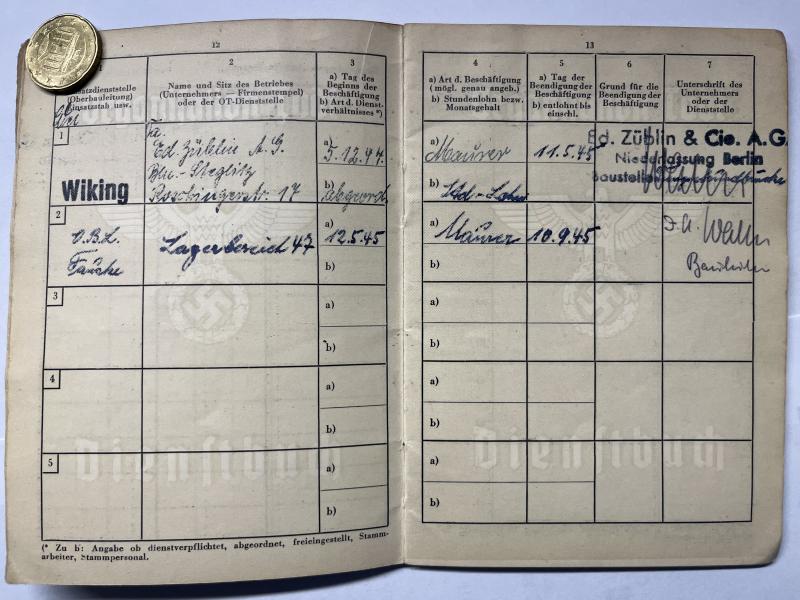 12
Einsatzdienststelle
(Oberbauleitung)
Einsatzstab usw.
2
Name und Sitz des Betriebes
(Unternehmers — Firmenstempel)
oder der OT-Dienststelle
3
a) Tag des
Beginns der
Beschäftigung
b) Art d. Dienst-
verhältnisses *)
1
Wiking
Fa.
Ed. Züblin A. G.
Bln.-Steglitz
17
a)
5.12.44
b)
abgeord.
2
O.B.L.
Lagerbereich 47
a)
12.5.45
b)
3
a)
b)
4
a)
b)
5
a)
b)
(* Zu b: Angabe ob dienstverpflichtet, abgeordnet, freieingestellt, Stamm-
arbeiter, Stammpersonal.
13
4
a) Art d. Beschäftigung
(mögl. genau angeb.)
b) Stundenlohn bezw.
Monatsgehalt
5
a) Tag der
Beendigung der
Beschäftigung
b) entlohnt bis
einschl.
6
Grund für die
Beendigung der
Beschäftigung
7
Unterschrift des
Unternehmers
oder der
Dienststelle
a)
Maurer
11.5.45
Ed. Züblin & Cie. A.G.
Niederlassung Berlin
Baustelle
b)
Std.-Lohn
a)
Maurer
10.9.45
b)
Bauleiter
a)
b)
a)
b)
a)
b)
Dienstbuch
Dienstbuch